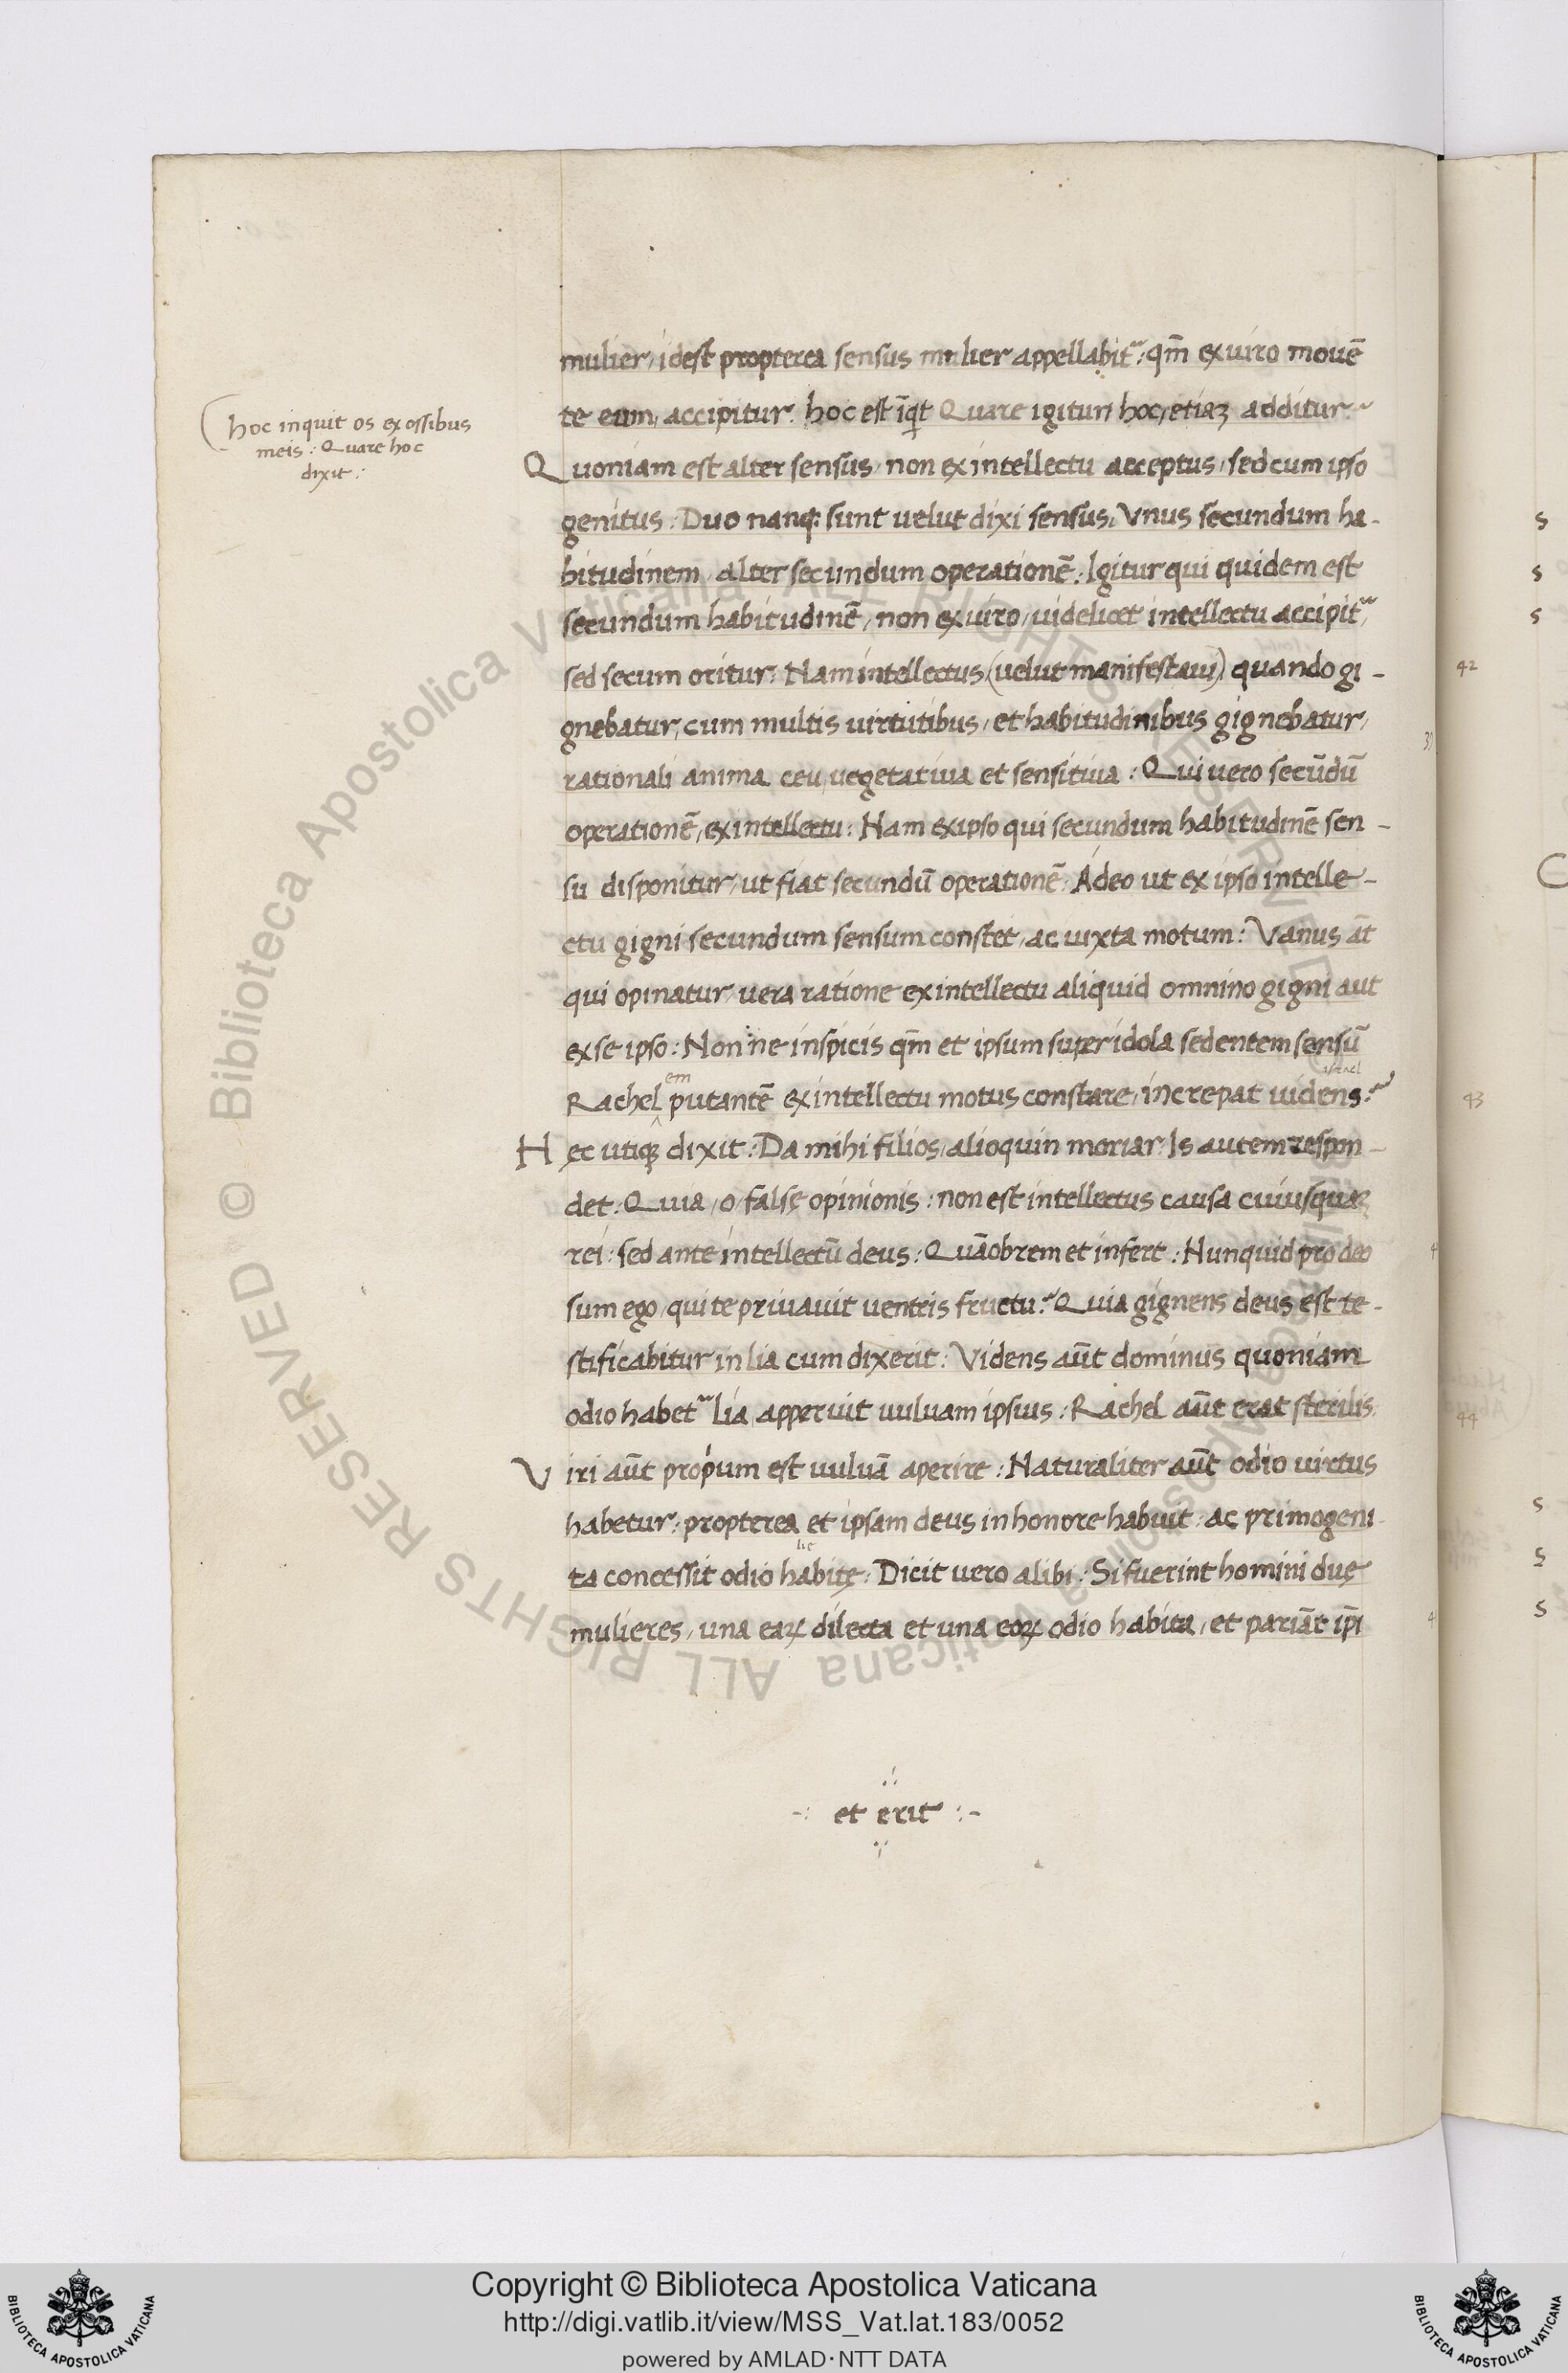 mulier, idest propterea sensus mulier appellabit᷑: qm̄ ex uiro mouē
te eum, accipitur. hoc est iq̄t Quare igitur hoc, etiaꝫ additur
Quoniam est alter sensus, non ex intellectu acceptus, sed cum ipso
genitus: Duo nanq: sunt uelut dixi sensus, Vnus secundum ha-
bitudinem, alter secundum operationē: Igitur qui quidem est
secundum habitudinē, non ex uiro, uidelicet intellectu accipit᷑,
sed secum oritur: Nam intellectus (uelut manifestaui) quando gi-
gnebatur, cum multis uirtutibus, et habitudinibus gignebatur,
rationali anima ceu, uegetatiua et sensitiua: Qui uero secūdū
operationē, ex intellectu: Nam ex ipso qui secundum habitudinē sen-
su disponitur, ut fiat secundū operationē: Adeo ut ex ipso intelle-
ctu gigni secundum sensum constet, ac iuxta motum: Vanus āt
qui opinatur, uera ratione ex intellectu aliquid omnino gigni aut
ex se ipso: Non ne inspicis qm̄ et ipsum super idola sedentem sensū
israel
em
Rachel putantē ex intellectu motus constare, increpat uidens?
Hec utiqꝫ dixit: Da mihi filios, alioquin moriar: Is autem respon-
det: Quia, o falsę opinionis: non est intellectus causa cuiusquaꝫ
rei: sed ante intellectū deus: Quāobrem et infert: Nunquid pro deo
sum ego, qui te priuauit uentris fructu? Quia gignens deus est te-
stificabitur in lia cum dixerit: Videns aūt dominus quoniam
odio habet᷑ lia, apperuit uuluam ipsius: Rachel aūt erat sterilis.
Viri aūt propͥum est uuluā aperire: Naturaliter aūt odio uirtus
habetur: propterea et ipsam deus in honore habuit: ac primogeni-
lie
ta concessit odio habitę: Dicit uero alibi: Si fuerint homini duę
mulieres, una eaꝝ dilecta et una eoꝝ odio habita, et pariāt ip̄i
-: et erit :-
hoc inquit os ex ossibus
meis: Quare hoc
dixit:
42
43
44
s
s
s
C
s
s
s
© Biblioteca Apostolica Vaticana ALL RIGHTS RESERVED
© Biblioteca Apostolica Vaticana ALL RIGHTS RESERVED
Copyright © Biblioteca Apostolica Vaticana
http://digi.vatlib.it/view/MSS_Vat.lat.183/0052
powered by AMLAD·NTT DATA
BIBLIOTECA APOSTOLICA VATICANA
BIBLIOTECA APOSTOLICA VATICANA